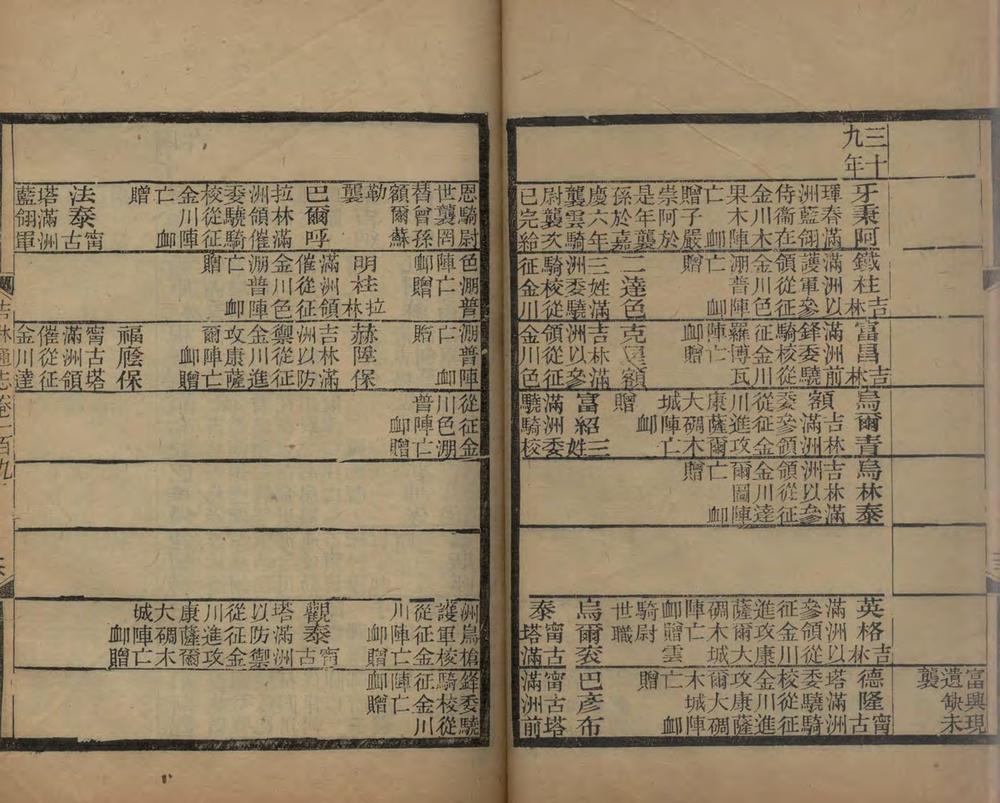 三十
九年
牙秉阿
琿春滿
洲藍翎
侍衞在
金川木
果木陣
亡卹
贈子嚴
崇阿於
是年襲
孫於嘉
慶六年
襲雲騎
尉襲次
已完給
鐵柱吉林
滿洲以
護軍參
領從征
金川色
淜普陣
亡卹
贈
二達色
三姓滿
洲委驍
騎校從
征金川
富昌吉林
滿洲前
鋒委驍
騎校從
征金川
羅博瓦
陣亡
卹贈
克星額
吉林滿
洲以參
領從征
金川色
烏爾青
額吉林
滿洲
委參領
從征金
川進攻
康薩爾
大碉木
城陣亡
卹
贈
富紹三姓
滿洲委
驍騎校
烏林泰
吉林滿
洲以參
領從征
金川達
爾圖陣
亡卹
贈
英格吉林
滿洲以
參領從
征金川
進攻康
薩爾大
碉木城
陣亡
卹贈雲
騎尉
世職
烏爾袞
泰甯古
塔滿
富興現
遺缺未
襲
德隆甯古
塔滿洲
委驍騎
校從征
金川進
攻康薩
爾大碉
木城陣
亡卹
贈
巴彥布
甯古塔
滿洲前
恩騎尉
世襲罔
替曾孫
額爾蘇
勒襲
巴爾呼
拉林滿
洲領催
委驍騎
校從征
金川陣
亡卹
贈
法泰甯古
塔滿洲
藍翎軍
色淜普
陣亡
卹贈
明桂拉林
滿洲領
催從征
金川色
淜普陣
亡卹
贈
淜普陣
亡卹
贈
赫隆保
吉林滿
洲以防
禦從征
金川進
攻康薩
爾陣亡
卹贈
福廕保
甯古塔
滿洲領
催從征
金川達
從征金
川色淜
普陣亡
卹贈
洲鳥槍
護軍校
從征金
川陣亡
卹贈
觀泰甯古
塔滿洲
以防禦
從征金
川進攻
康薩爾
大碉木
城陣亡
卹贈
鋒委驍
騎校從
征金川
陣亡
卹贈
吉林通志卷一百九